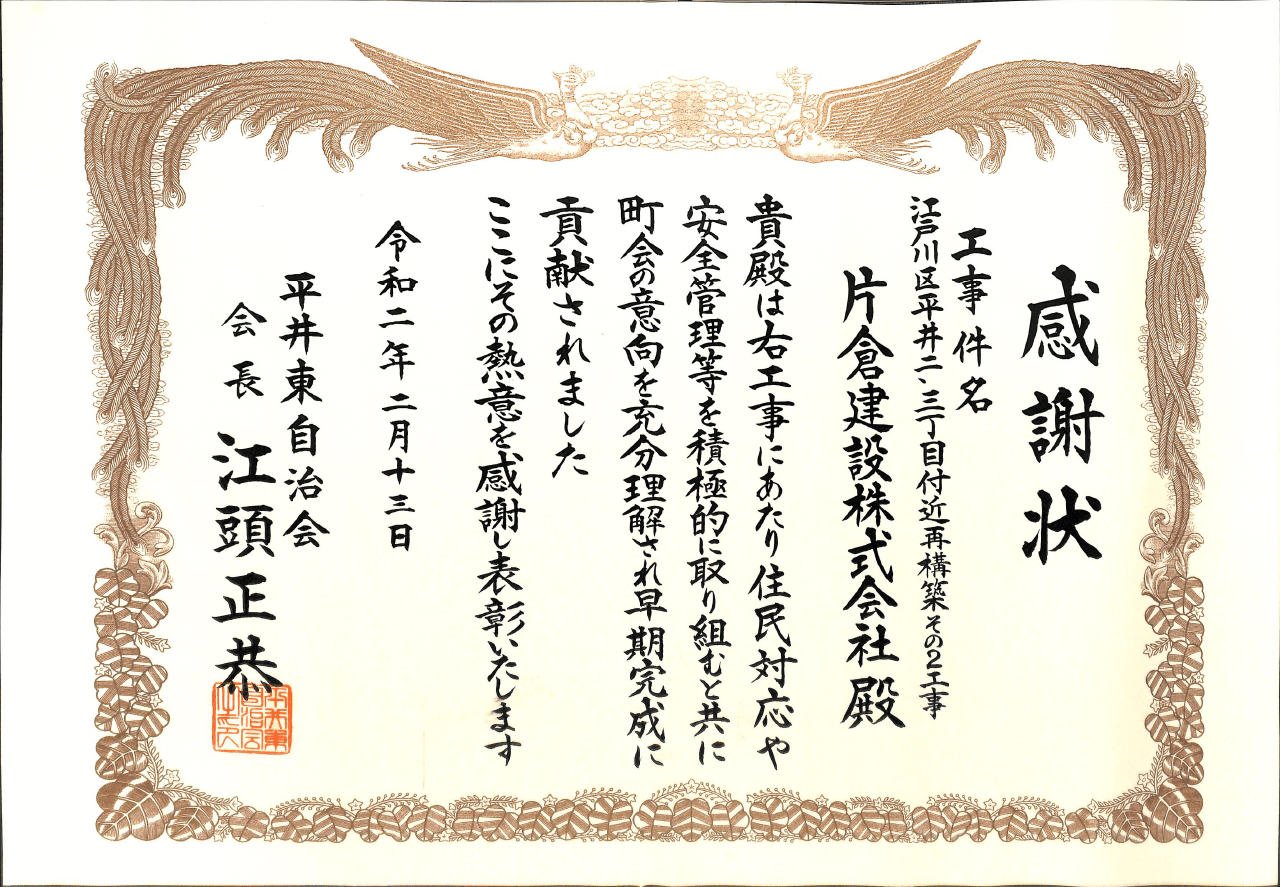 感謝状
工事件名
江戸川区平井二、三丁目付近再構築その2工事
片倉建設株式会社殿
貴殿は右工事にあたり住民対応や
安全管理等を積極的に取り組むと共に
町会の意向を充分理解され早期完成に
貢献されました
ここにその熱意を感謝し表彰いたします
令和二年二月十三日
平井東自治会
会長 江頭正恭